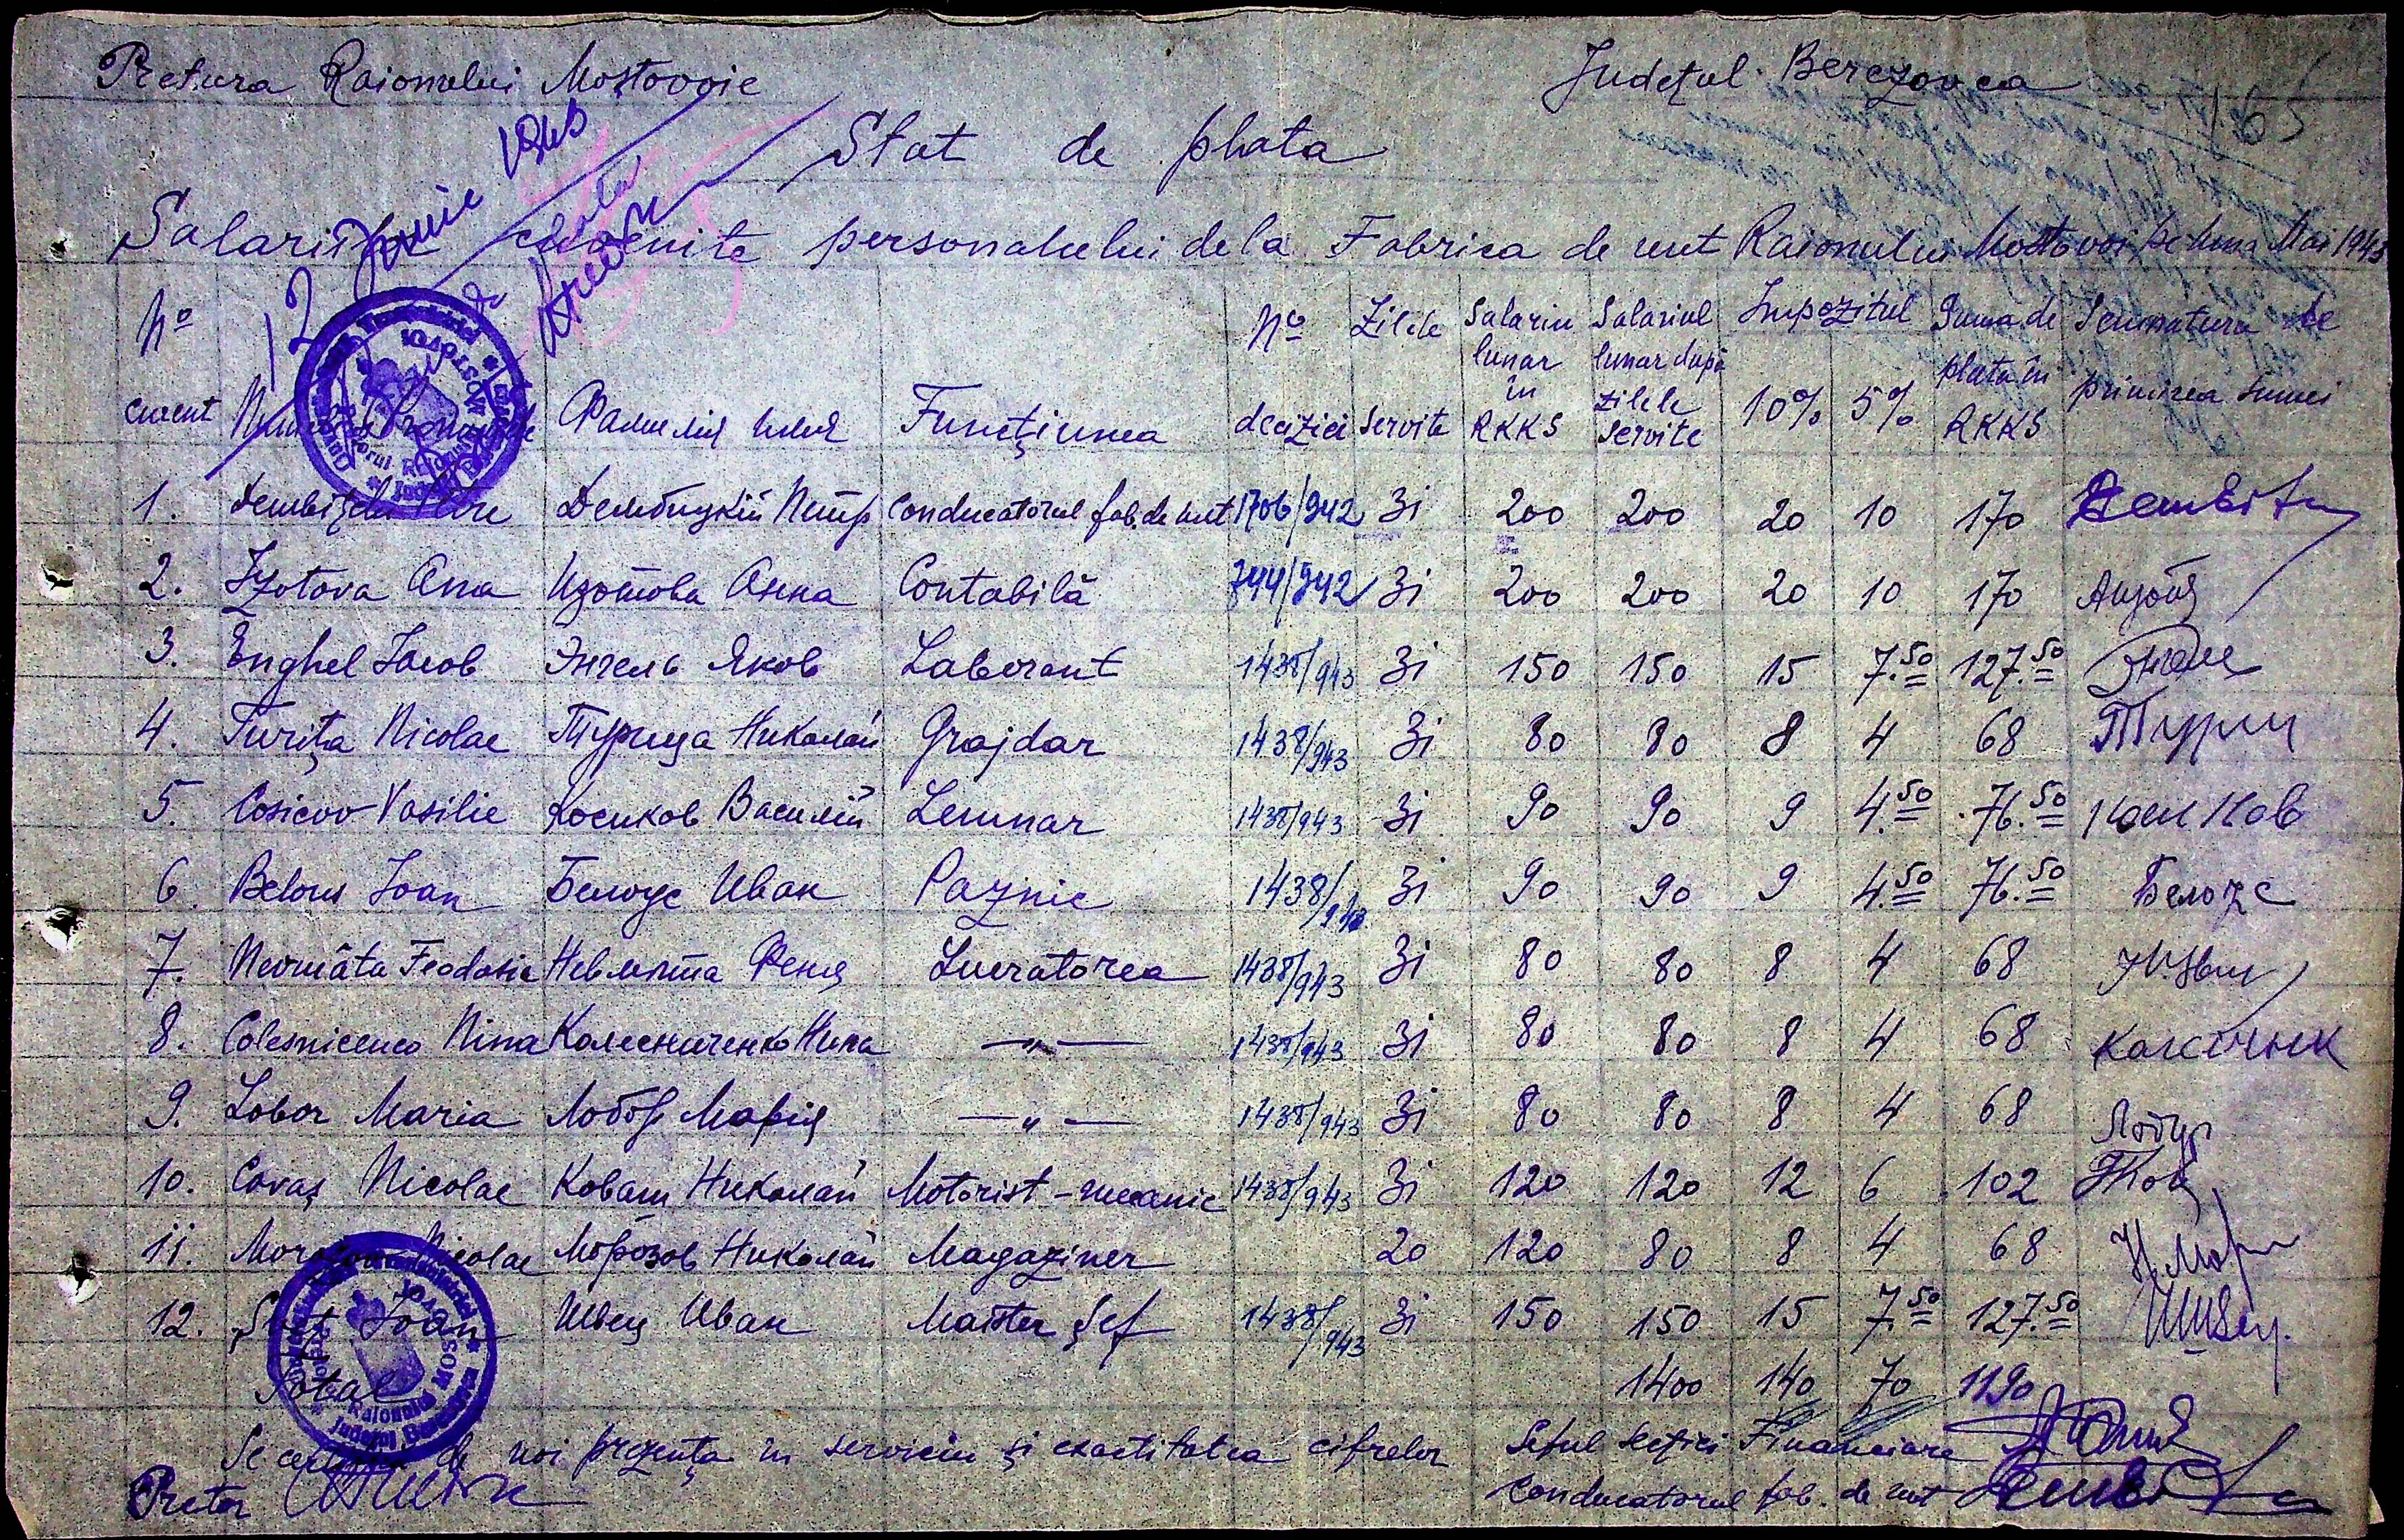 Pretura Raionului Mostovoie Județul Berezovca
165
12 Iunie 1943
Stat de plata
Salariile cuvenite personalului de la Fabrica de unt Raionului Mostovoi pe luna Mai 1943
No curent Numele Pronumele Фамилия имя Funcțiunea No deciziei Zilele servite Salariu lunar în RKKS Salariul lunar după zilele servite Impozitul 10% 5% Suma de plata în RKKS Semnatura de primirea sumei
1. Petre Дембицкій Петр Conducatorul fab. de unt 1706/942 31 200 200 20 10 170
2. Izotova Ana Изотова Анна Contabilă 744/942 31 200 200 20 10 170
3. Enghel Iacob Энгель Яков Laborant 1438/943 31 150 150 15 7.50 127.50
4. Turița Nicolae Турица Николай Grajdar 1438/943 31 80 80 8 4 68 Турич
5. Cosicov Vasilie Косиков Василій Lemnar 1438/943 31 90 90 9 4.50 76.50
6. Belous Ioan Белоус Иван Paznic 1438/943 31 90 90 9 4.50 76.50 Белоус
7. Nevmâta Feodosia Невмыта Феня Lucrătorea 1438/943 31 80 80 8 4 68
8. Colesnicenco Nina Колесниченко Нина —„— 1438/943 31 80 80 8 4 68
9. Lobor Maria Лобор Марія —„— 1438/943 31 80 80 8 4 68
10. Covaș Nicolae Коваш Николай Motorist-mecanic 1438/943 31 120 120 12 6 102
11. Morozov Nicolae Морозов Николай Magaziner 20 120 80 8 4 68 Н. Мор
12. Ioan Швец Иван Maister Șef 1438/943 31 150 150 15 7.50 127.50
Total 1400 140 70 1190
Se certifica de noi prezența in serviciu și exactitatea cifrelor Șeful Secției Financiare
Pretor Conducatorul fab. de unt